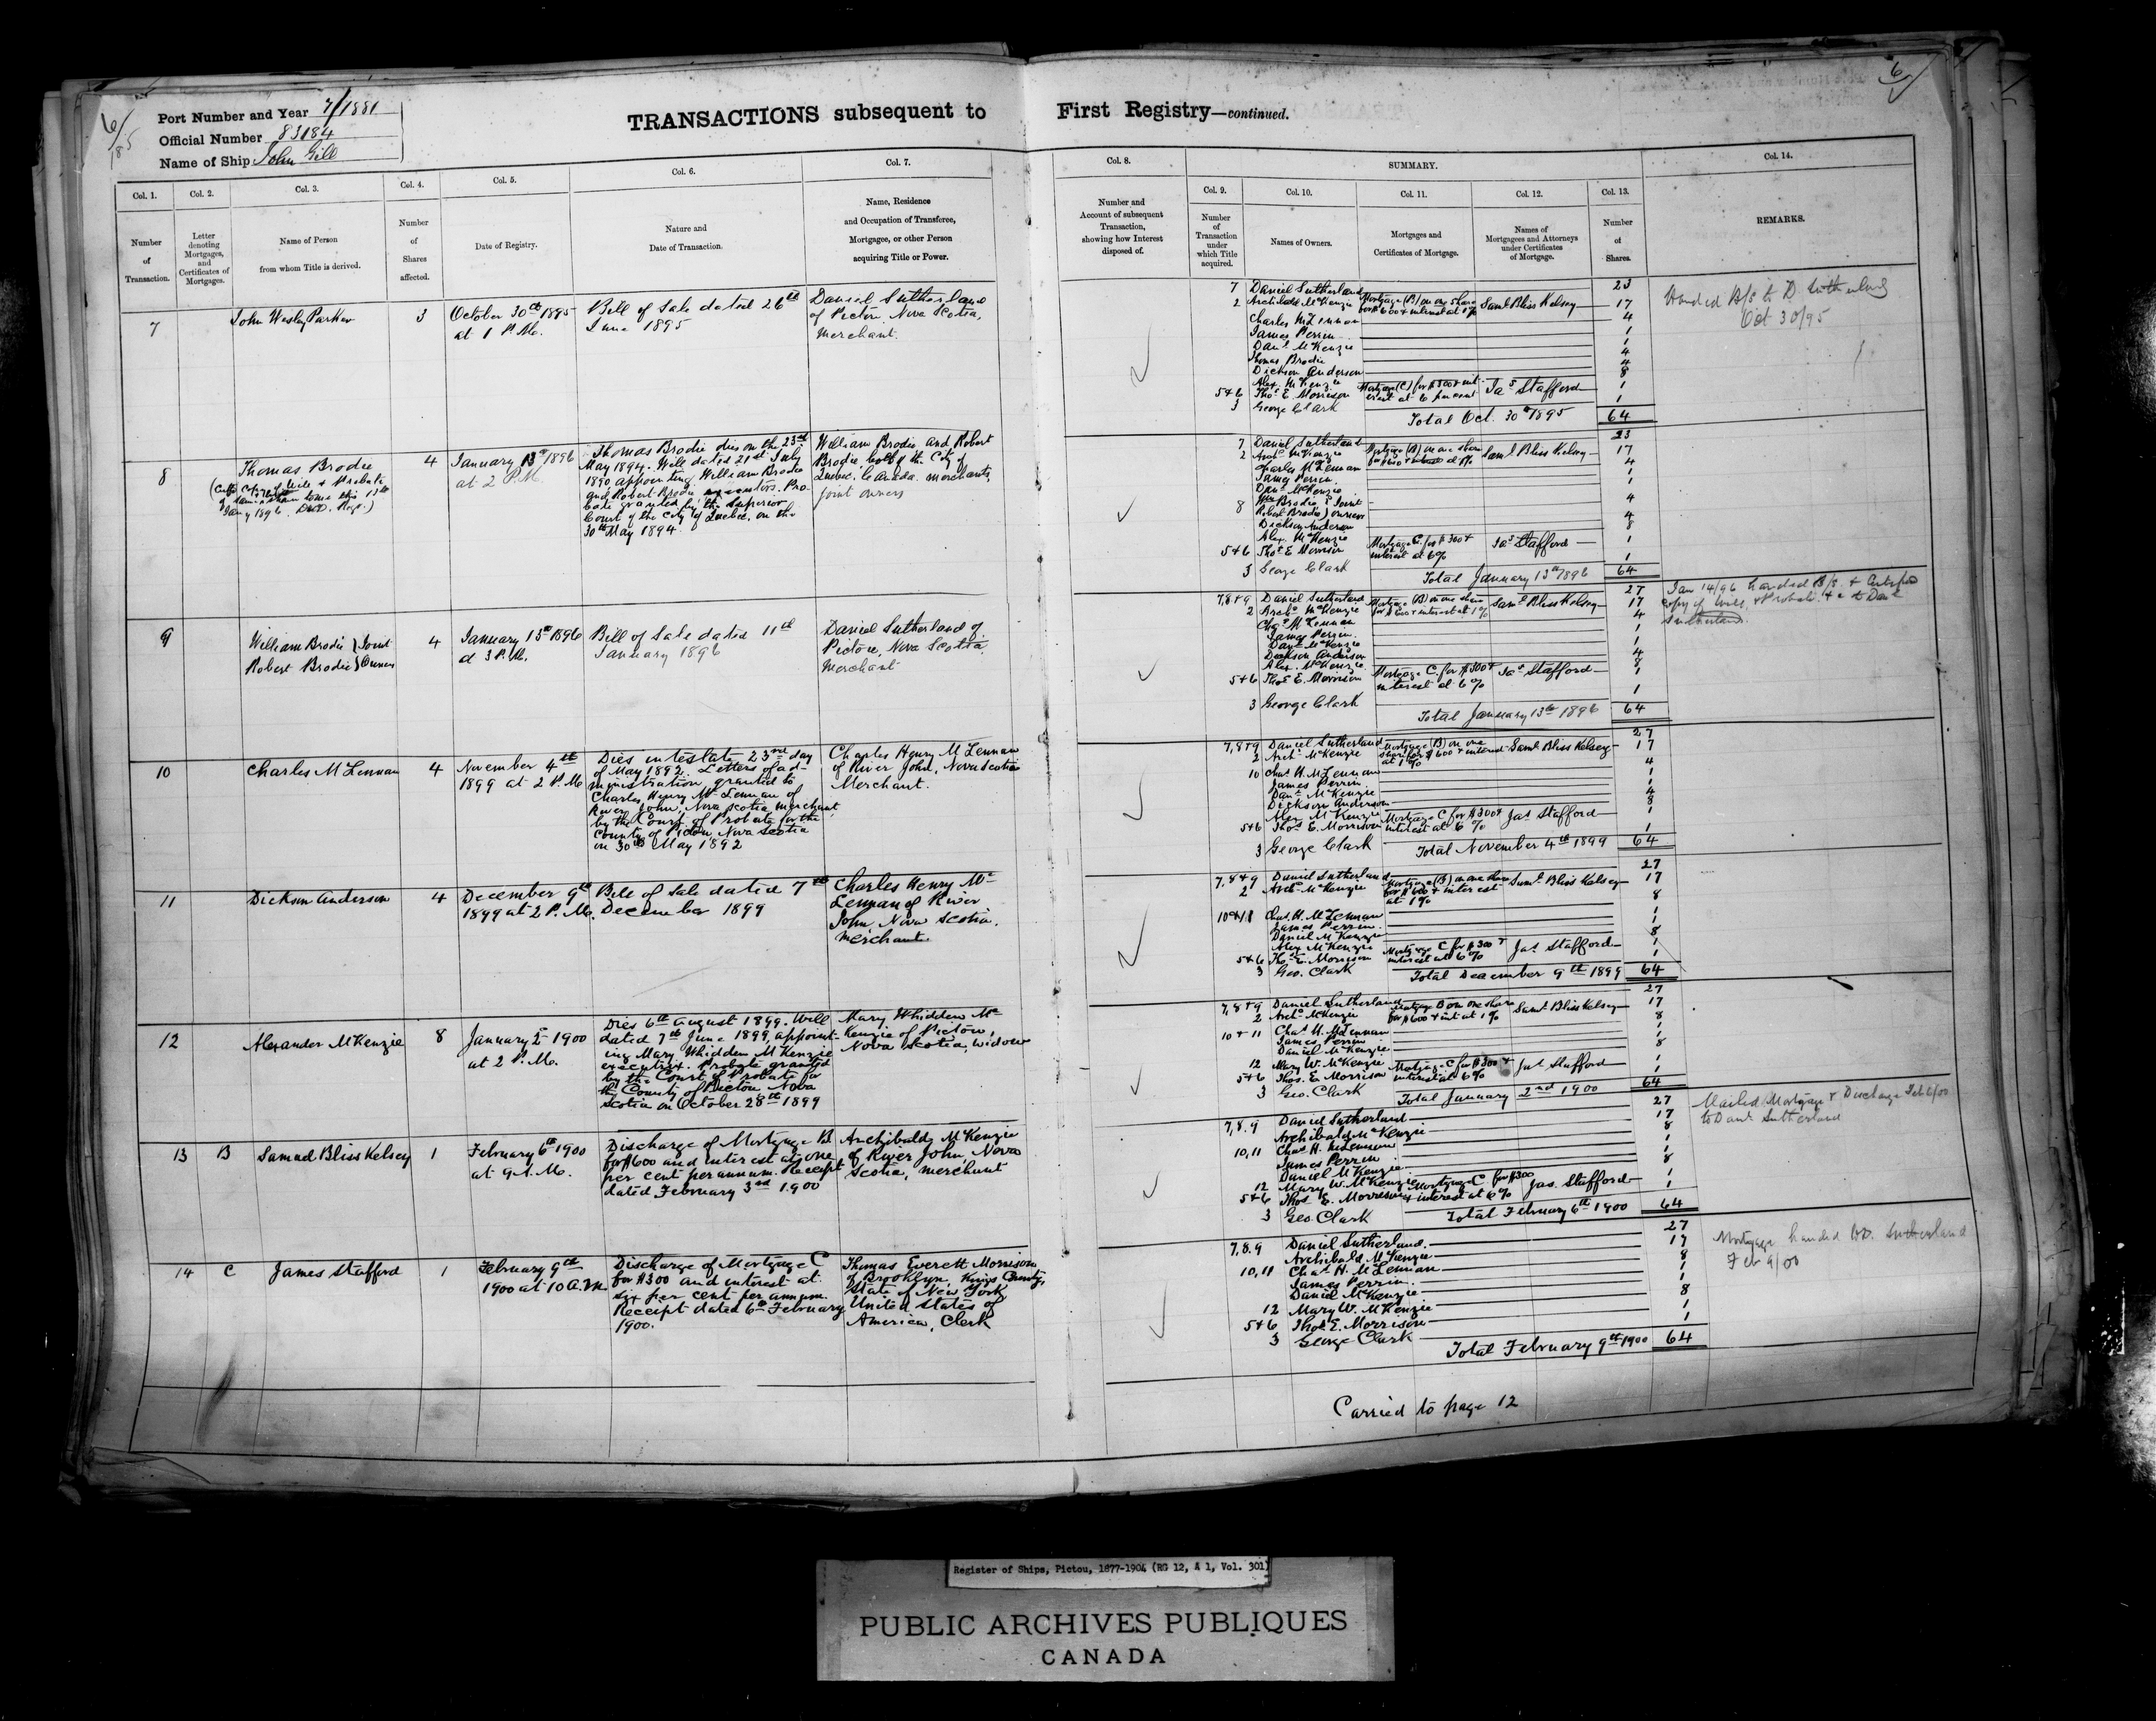 6/
185
Port Number and Year 7/1881
Official Number 83184
Name of Ship John Gill
TRANSACTIONS subsequent to First Registry—continued.
6/
Col. 1.
Number
of
Transaction.
Col. 2.
Letter
denoting
Mortgages,
and
Certificates of
Mortgages.
Col. 3.
Name of Person
from whom Title is derived.
Col. 4.
Number
of
Shares
affected.
Col. 5.
Date of Registry.
Col. 6.
Nature and
Date of Transaction.
Col. 7.
Name, Residence
and Occupation of Transferee,
Mortgagee, or other Person
acquiring Title or Power.
Col. 8.
Number and
Account of subsequent
Transaction,
showing how Interest
disposed of.
SUMMARY.
Col. 9.
Number
of
Transaction
under
which Title
acquired.
Col. 10.
Names of Owners.
Col. 11.
Mortgages and
Certificates of Mortgage.
Col. 12.
Names of
Mortgagees and Attorneys
under Certificates
of Mortgage.
Col. 13.
Number
of
Shares.
Col. 14.
REMARKS.
7
John Wesley Parker
3
October 30th 1895
at 1 P.M.
Bill of Sale dated 26th
June 1895
Daniel Sutherland
of Pictou, Nova Scotia,
Merchant.
7 Daniel Sutherland 23
2 Archibald McKenzie Mortgage (B) on one share Saml Bliss Kelsey 17
for $600 & interest at 1%
Charles McLennan 4
James Perrin 1
Danl McKenzie 1
Thomas Brodie 4
Dickson Anderson 4
Alex. McKenzie 8
5+6 Thos E. Morrison Mortgage (C) for $300 & int- Jas Stafford 1
erest at 6 per cent
3 George Clark 1
Total Oct. 30th 1895 64
Handed B/S to D Sutherland
Oct 30/95
8
Thomas Brodie
4
January 13th 1896
at 2 P.M.
Thomas Brodie dies on the 23rd
May 1894. Will dated 21st July
1890 appointing William Brodie
and Robert Brodie executors. Pro-
bate granted by the Superior
Court of the City of Quebec, on the
30th May 1894.
William Brodie and Robert
Brodie, both of the City of
Quebec, Canada. merchants,
joint owners
7 Daniel Sutherland 23
2 Archd McKenzie Mortgage (B) on one share Saml Bliss Kelsey 17
for $600 & interest at 1%
Charles McLennan 4
James Perrin. 1
Danl McKenzie 1
8 Wm Brodie } Joint 4
Robert Brodie } owners
Dickson Anderson 4
Alex. McKenzie 8
5+6 Thos E Morrison Mortgage C. for $300 + Jas Stafford 1
interest at 6%
3 George Clark 1
Total January 13th 1896 64
9
William Brodie } Joint
Robert Brodie } Owners
4
January 13th 1896
at 3 P.M.
Bill of Sale dated 11th
January 1896
Daniel Sutherland of
Pictou, Nova Scotia,
Merchant
7,8+9 Daniel Sutherland 27
2 Archd McKenzie Mortgage (B) on one share Saml Bliss Kelsey 17
for $600 + interest at 1%
Chas McLennan 4
James Perrin. 1
Danl McKenzie 1
Dickson Anderson 4
Alex. McKenzie 8
5+6 Thos E. Morrison Mortgage C. for $300 + Jas Stafford 1
interest at 6%
3 George Clark 1
Total January 13th 1896 64
Jan 14/96 handed B/S. +
copy of Will, + Probate, + c to Danl
Sutherland.
10
Charles McLennan
4
November 4th
1899 at 2 P.M.
Dies intestate 23rd day
of May 1892. Letters of ad-
ministration granted to
Charles Henry McLennan of
River John, Nova Scotia merchant
by the Court of Probate for the
County of Pictou, Nova Scotia
on 30th May 1892
Charles Henry McLennan
of River John, Nova Scotia
Merchant.
7,8+9 Daniel Sutherland 27
2 Archd McKenzie Mortgage (B) on one Saml Bliss Kelsey 17
share for $600 + interest
at 1%
10 Chas H. McLennan 4
James Perrin 1
Danl McKenzie 1
Dickson Anderson 4
Alex McKenzie 8
5+6 Thos E. Morrison Mortgage C for $300 + Jas Stafford 1
interest at 6%
3 George Clark 1
Total November 4th 1899 64
11
Dickson Anderson
4
December 9th
1899 at 2 P.M.
Bill of Sale dated 7th
December 1899
Charles Henry Mc-
Lennan of River
John, Nova Scotia.
Merchant.
7,8+9 Daniel Sutherland 27
2 Archd McKenzie Mortgage (B) on one share Saml Bliss Kelsey 17
for $600 + interest
at 1%
10+11 Chas. H. McLennan 8
James Perrin. 1
Daniel McKenzie 1
Alex McKenzie 8
5+6 Thos E. Morrison Mortgage C for $300 + Jas Stafford 1
interest at 6%
3 Geo. Clark 1
Total December 9th 1899 64
12
Alexander McKenzie
8
January 2nd 1900
at 2 P.M.
Dies 6th August 1899. Will
dated 7th June 1899, appoint-
ing Mary Whidden McKenzie
executrix. Probate granted
by the Court of Probate for
the County of Pictou Nova
Scotia on October 28th 1899
Mary Whidden Mc-
Kenzie of Pictou,
Nova Scotia, widow
7,8+9 Daniel Sutherland 27
2 Archd McKenzie Mortgage B on one share Saml Bliss Kelsey 17
for $600 + int at 1%
10+11 Chas H. McLennan 8
James Perrin 1
Daniel McKenzie 1
12 Mary W. McKenzie 8
5+6 Thos. E. Morrison Mortgage C for $300 + Jas Stafford 1
interest at 6%
3 Geo. Clark 1
Total January 2nd 1900 64
13
B
Samuel Bliss Kelsey
1
February 6th 1900
at 9 A.M.
Discharge of Mortgage B
for $600 and interest at one
per cent per annum. Receipt
dated February 3rd 1900
Archibald McKenzie
of River John, Nova
Scotia, merchant
7,8.9 Daniel Sutherland 27
Archibald McKenzie 17
10,11 Chas H. McLennan 8
James Perrin 1
Daniel McKenzie 1
12 Mary W. McKenzie 8
5+6 Thos E. Morrison Mortgage C for $300 Jas. Stafford 1
interest at 6%
3 Geo. Clark 1
Total February 6th 1900 64
Mailed Mortgage + Discharge Feb 6/00
to Danl Sutherland
14
C
James Stafford
1
February 9th
1900 at 10 A.M.
Discharge of Mortgage C
for $300 and interest at
six per cent per annum.
Receipt dated 6th February
1900.
Thomas Everett Morrison
of Brooklyn, Kings County,
State of New York
United States of
America, Clerk
7,8.9 Daniel Sutherland. 27
Archibald McKenzie 17
10,11 Chas H. McLennan 8
James Perrin. 1
Daniel McKenzie 1
12 Mary W. McKenzie 8
5+6 Thos E. Morrison 1
3 George Clark 1
Total February 9th 1900 64
Mortgage handed D. Sutherland
Feb 9/00
Carried to page 12
Register of Ships, Pictou, 1877-1904 (RG 12, A 1, Vol. 301)
PUBLIC ARCHIVES PUBLIQUES
CANADA